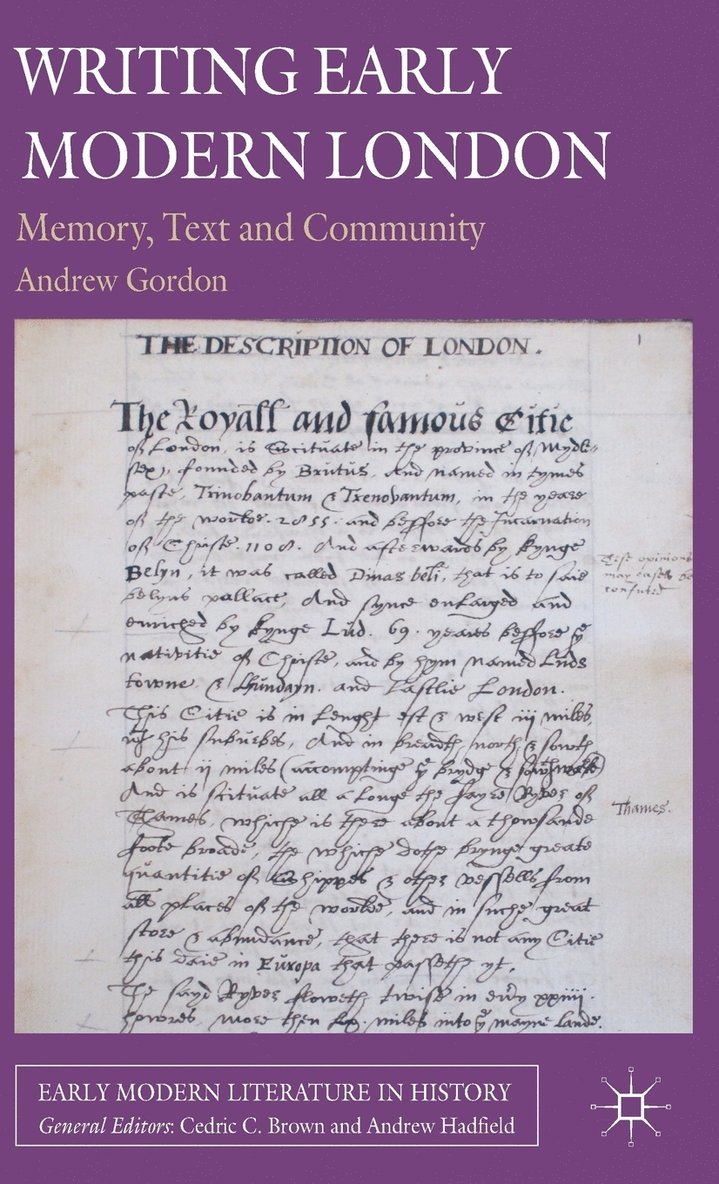 WRITING EARLY
MODERN LONDON
Memory, Text and Community
Andrew Gordon
THE DESCRIPTION OF LONDON.
1
The Royall and famous Citie
of London, is scituate in the province of Mydle-
sex, founded by Brutus, And named in tymes
paste, Trinobantum & Trenovantum, in the yeare
of the worlde. 2855. and beffore the Incarnation
of Christe. 1108. And afterwards by kynge
Belyn, it was called Dinas beli, that is to saie
belyns pallace, And synce enlarged and
enriched by kynge Lud. 69. yeares beffore yͤ
nativitie of Christe, and by hym named Luds
towne & Lhundayn. and Lastlie London.
These opinions
may easely be
confuted
This Citie is in lenght est & west iij miles,
wᵗʰ his suburbes, And in breadth north & sowth
about ij miles (accomptinge yͤ brydge & sowthwarke)
And is scituate all a longe the fayre Ryver of
Thames, whiche is there about a thowsande
Thames.
foote broade, the whiche dothe brynge greate
quantitie of shippes & other vessells from
all places of the worlde, and in suche great
store & abundance, that there is not any Citie
this daie in Europa that passeth yt.
The sayd Ryver floweth twise in every xxiiij.
howres, more then lx. miles into yͤ mayne lande.
EARLY MODERN LITERATURE IN HISTORY
General Editors: Cedric C. Brown and Andrew Hadfield